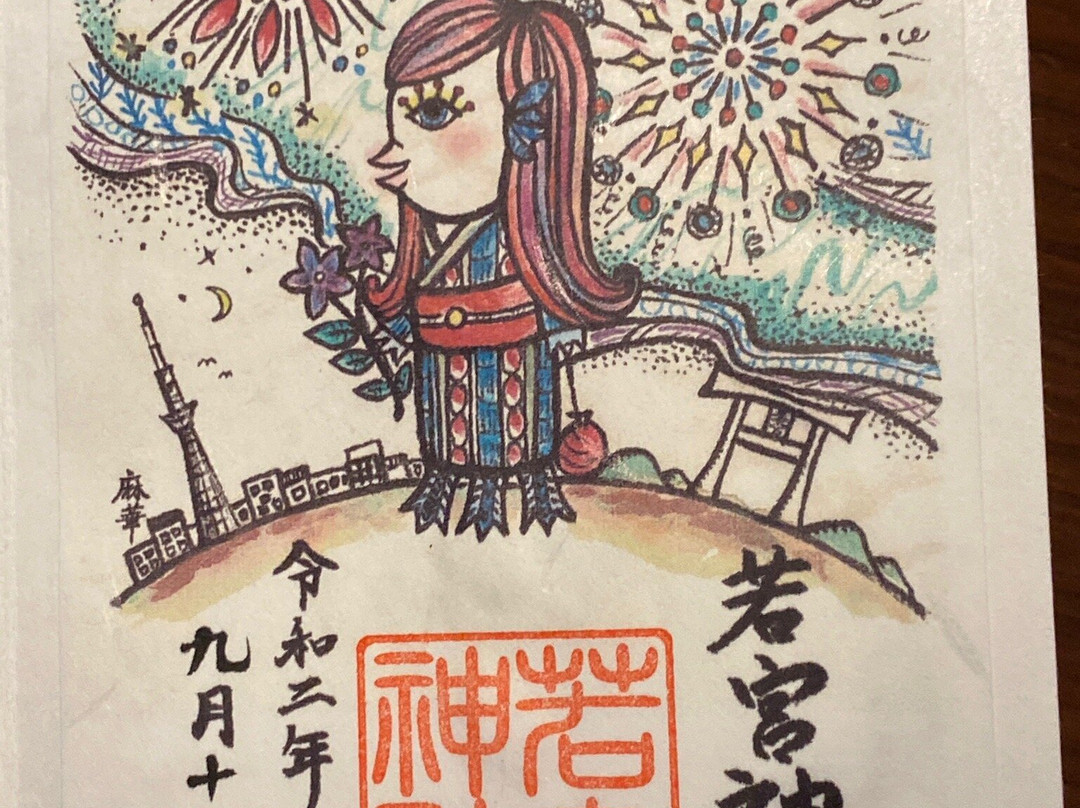 若宮神
令和二年
九月十
若
神
麻華